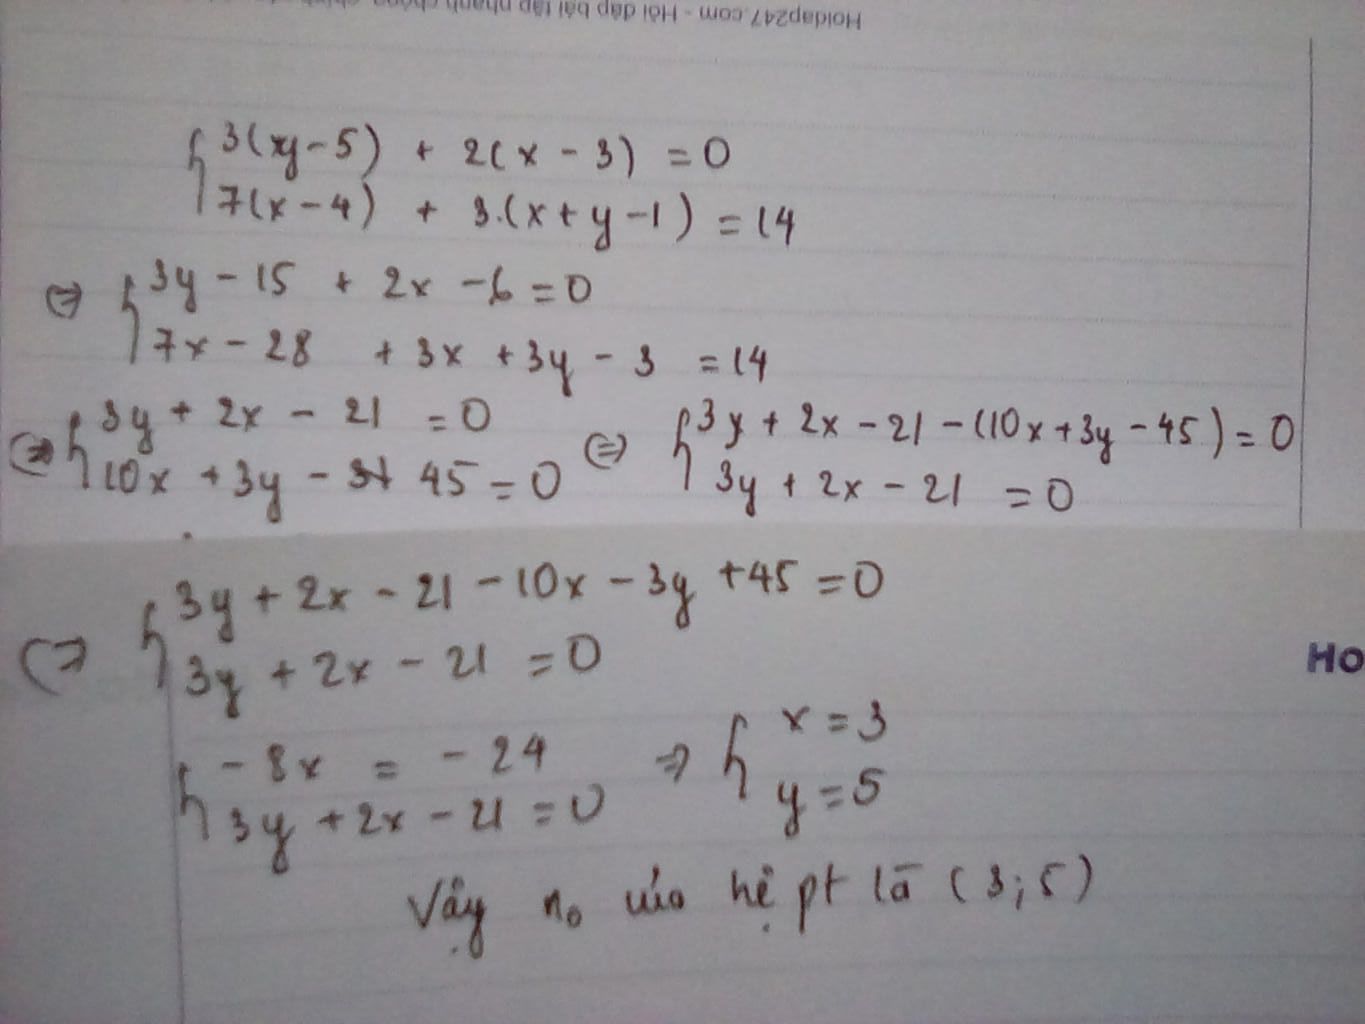 Hoidap247.com - Hỏi đáp bài tập nhanh
3(xy-5) + 2(x-3) = 0
7(x-4) + 3.(x+y-1) = 14
⇔ 3y - 15 + 2x - 6 = 0
7x - 28 + 3x + 3y - 3 = 14
⇔ 3y + 2x - 21 = 0
10x + 3y - 45 = 0
⇔ 3y + 2x - 21 - (10x + 3y - 45) = 0
3y + 2x - 21 = 0
⇔ 3y + 2x - 21 - 10x - 3y + 45 = 0
3y + 2x - 21 = 0
Ho
-8x = -24
3y + 2x - 21 = 0
⇒ x = 3
y = 5
Vậy no của hệ pt là (3;5)